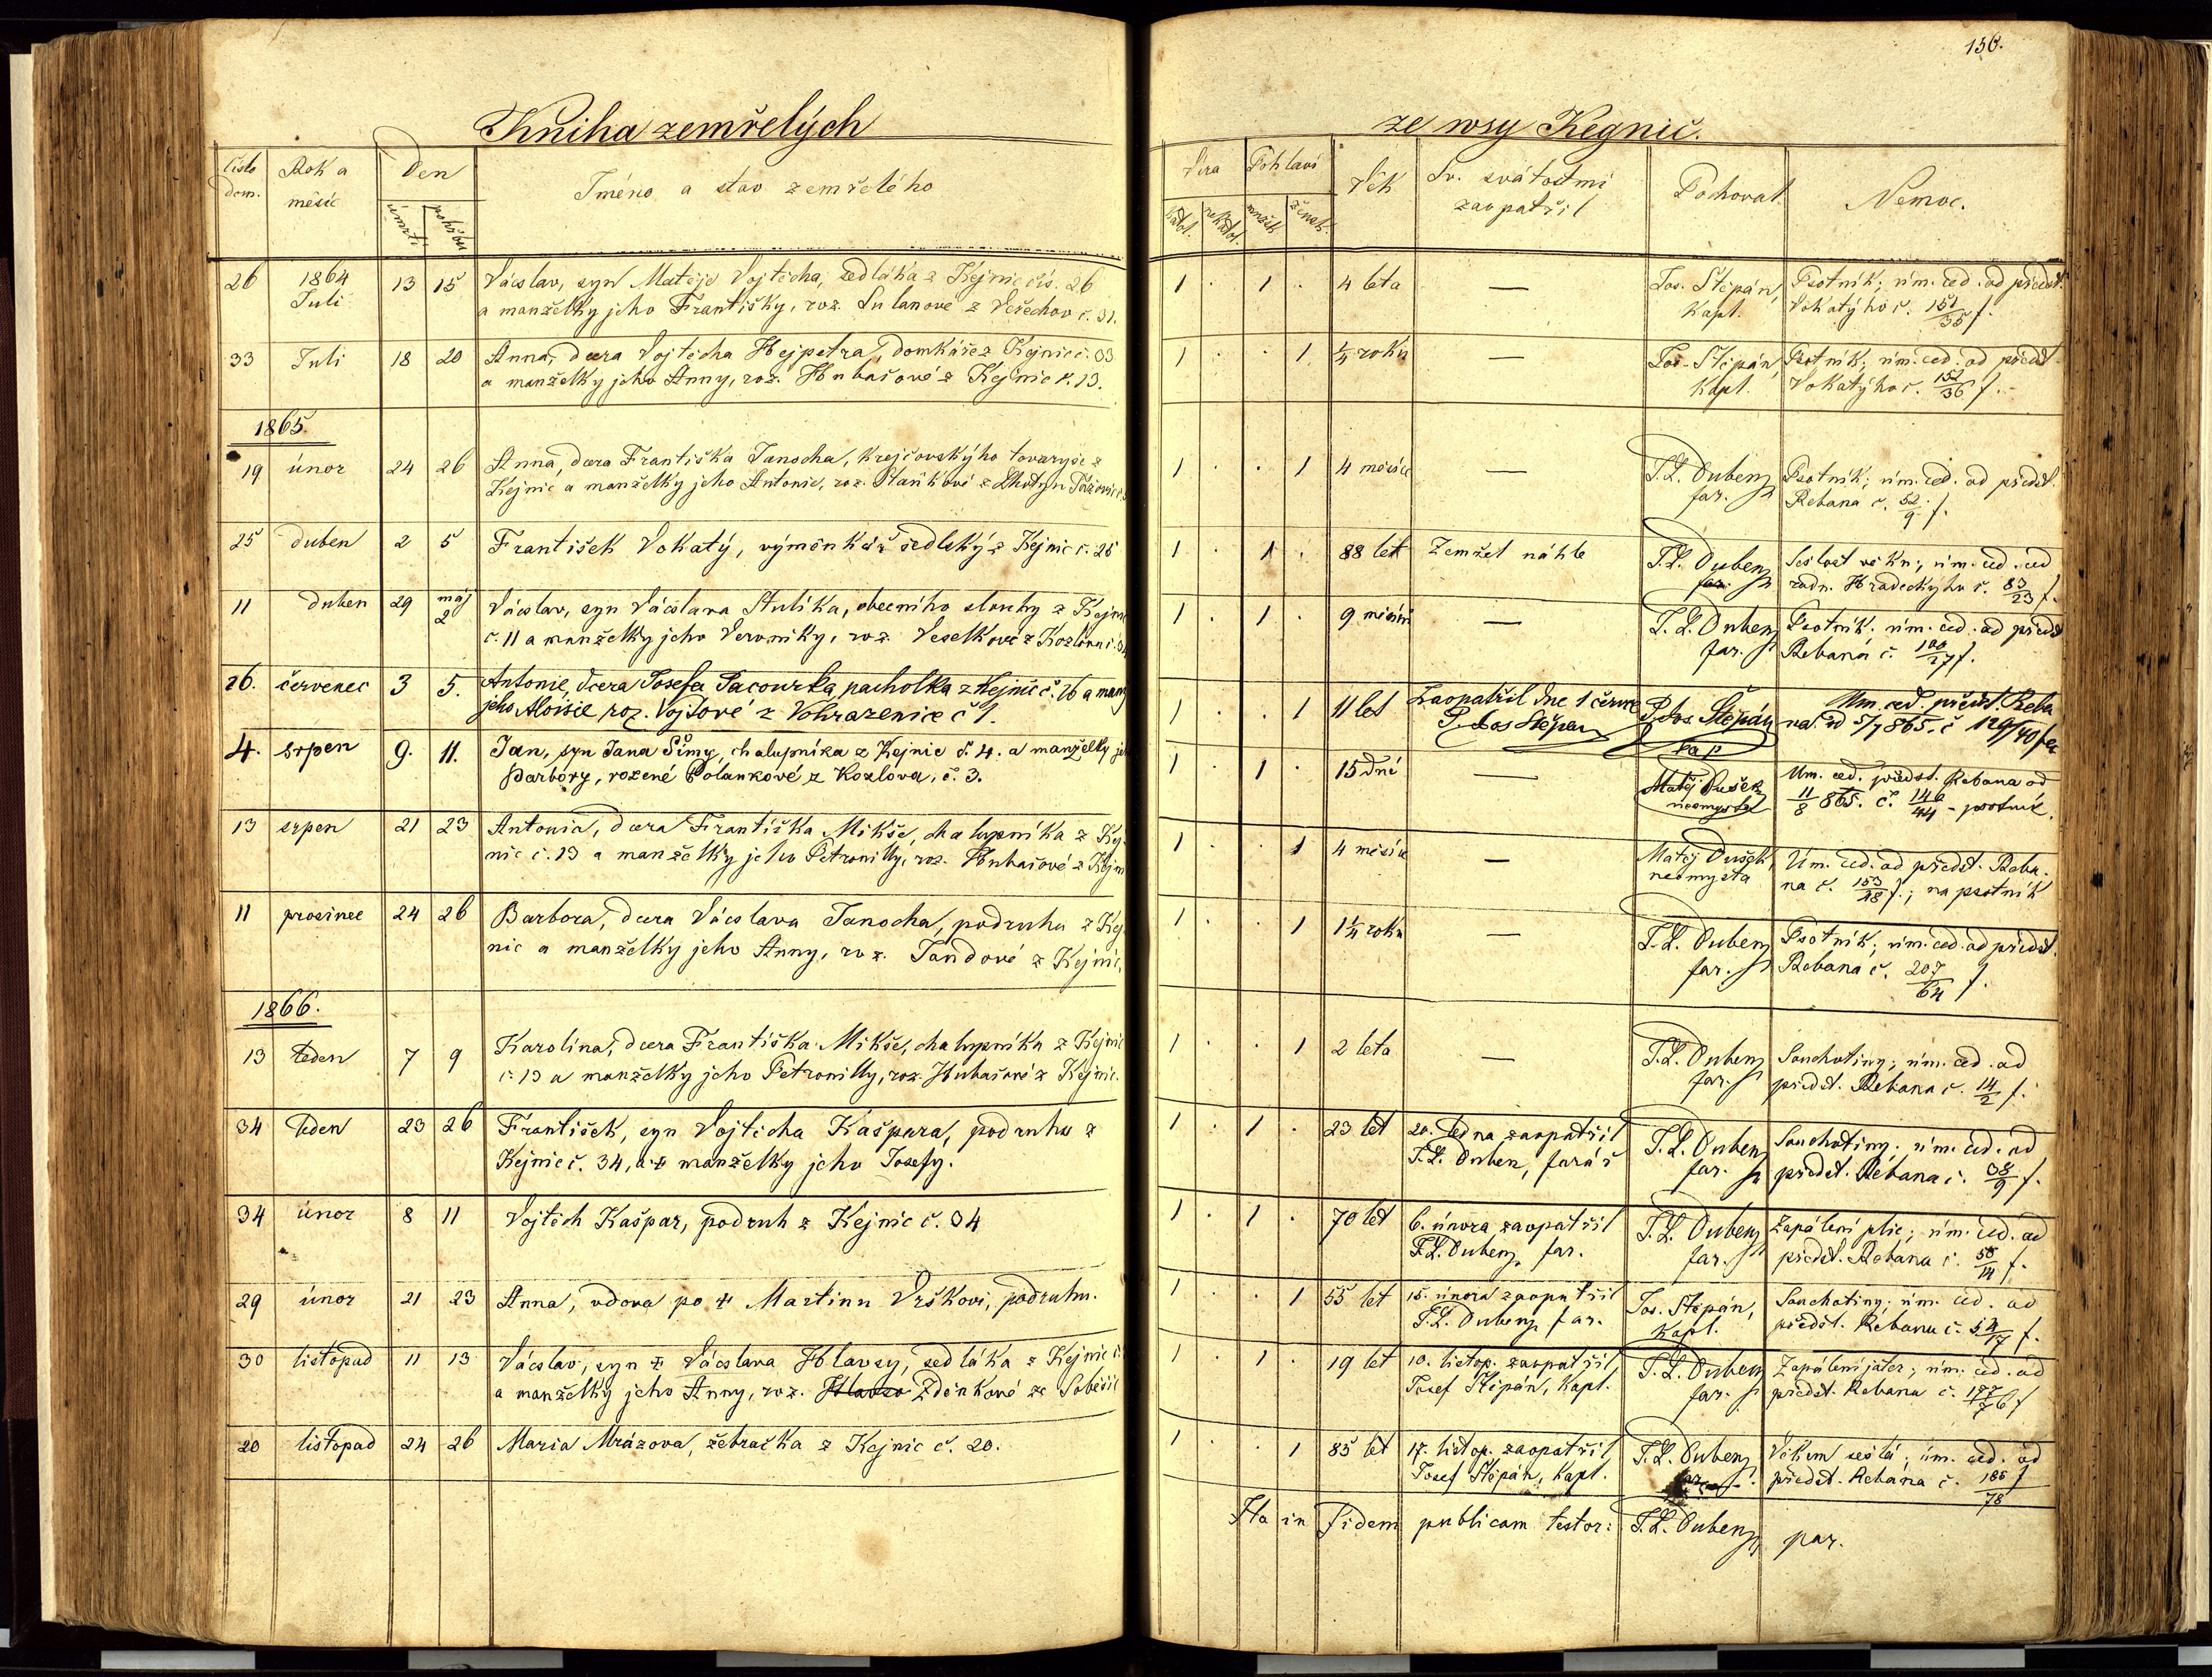 156.
Kniha zemřelých
ze wsy Kegnič.
číslo dom. Rok a měsíc Den úmrtí pohřbu Jméno a stav zemřelého
Víra katol. nekatol. Pohlaví mužsk. žensk. Věk Sv. svátostmi zaopatřil Pochoval Nemoc.
26 1864 Juli 13 15 Václav, syn Matěje Vojtěcha, sedláka z Kejnic čís. 26
a manželky jeho Františky, roz. z Vešechov č. 31.
1 . 1 . 4 leta — Jos. Štěpán, Kapl. Psotník; úm. ced. od předst.
Vokatýho č. 151/35 f.
33 Juli 18 20 Anna, dcera Vojtěcha Hejpetra, domkáře z Kejnic č. 33
a manželky jeho Anny, roz. Hubašové z Kejnic č. 13.
1 . . 1 1/4 roku — Jos. Štěpán, Kapl. Psotník; úm. ced. od předst.
Vokatýho č. 152/36 f.
1865.
19 únor 24 26 Anna, dcera Františka Janocha, krejčovskýho tovaryše z
Kejnic a manželky jeho Antonie, roz.
1 . . 1 4 měsíce — T. L. Duben, far. Psotník; úm. ced. od předst.
Rebana č. 52/9 f.
25 duben 2 5 František Vokatý, výměnkář sedlský z Kejnic č. 25
1 . 1 . 88 let Zemřel náhle T. L. Duben, far. Sešlost věku; úm. ced. od
radn. Hradeckýho č. 83/23 f.
11 duben 29 máj 2 Václav, syn Václava Stulíka, obecního slouhy z Kejnic
č. 11 a manželky jeho Veroniky, roz. Veselkové z Kozlova č.
1 . 1 . 9 měsíců — T. L. Duben, far. Psotník. úm. ced. od předst.
Rebana č. 100/27 f.
26. červenec 3 5. Antonie, dcera Josefa Sacourka, pacholka z Kejnic č. 26 a manž
jeho Aloisie, roz. Vojtové z Vohrazenice č 1.
1 . . 1 11 let Zaopatřil dne 1 červce P. Jos Štěpán P. Jos Štěpán kap Úm. ced. předst. Reba
na. od 5/7 865. č 129/40
4. srpen 9. 11. Jan, syn Jana Šímy, chalupníka z Kejnic č. 4. a manželky je
Barbory, rozené Polankové z Kozlova, č. 3.
1 . 1 . 15 dní — Matěj Dušek neomysta Úm. ced. předst. Rebana od
11/8 865. č. 146/44 – psotník.
13 srpen 21 23 Antonie, dcera Františka Mikše, chalupníka z Kej-
nic č. 13 a manželky jeho Petronilly, roz. Hubašové z Kejn
1 . . 1 4 měsíce — Matěj Dušek, neomysta Úm. ced. od předst. Reba-
na č. 153/48 f.; na psotník
11 prosinec 24 26 Barbora, dcera Václava Janocha, podruha z Kej
nic a manželky jeho Anny, roz. Jandové z Kejnic.
1 . . 1 1 1/4 roku — T. L. Duben, far. Psotník; úm. ced. od předst.
Rebana č. 207/64 f.
1866.
13 leden 7 9 Karolina, dcera Františka Mikše, chalupníka z Kejnic
č. 13 a manželky jeho Petronilly, roz. Hubašové z Kejnic.
1 . . 1 2 leta — T. L. Duben, far. Souchotiny; úm. ced. od
předst. Rebana č. 14/2 f.
34 leden 23 26 František, syn Vojtěcha Kašpara, podruha z
Kejnic č. 34, a † manželky jeho Josefy.
1 . 1 . 23 let 20. ledna zaopatřil T. L. Duben, farář T. L. Duben, far. Souchotiny; úm. ced. od
předst. Rebana č. 38/9 f.
34 únor 8 11 Vojtěch Kašpar, podruh z Kejnic č. 34
1 . 1 . 70 let 6. února zaopatřil T. L. Duben, far. T. L. Duben, far. Zapálení plic; úm. ced. od
předst. Rebana č. 50/14 f.
29 únor 21 23 Anna, vdova po † Martinu Vrškovi, podruhu.
1 . . 1 55 let 15. února zaopatřil T. L. Duben, far. Jos. Štěpán, Kapl. Souchotiny; úm. ced. od
předst. Rebana č. 54/17 f.
30 listopad 11 13 Václav, syn † Václava Hlavsy, sedláka z Kejnic č.
a manželky jeho Anny, roz. Zdeňkové ze Soběšic
1 . 1 . 19 let 10. listop. zaopatřil, Josef Štěpán, Kapl. T. L. Duben, far. Zapálení jater; úm. ced. od
předst. Rebana č. 177/76 f
20 listopad 24 26 Maria Mrázova, žebračka z Kejnic č. 20.
1 . . 1 85 let 17. listop. zaopatřil, Josef Štěpán, Kapl. T. L. Duben, far. Věkem sešlá; úm. ced. od
předst. Rebana č. 186/78 f
Ita in fidem publicam testor: T. L. Duben, par.